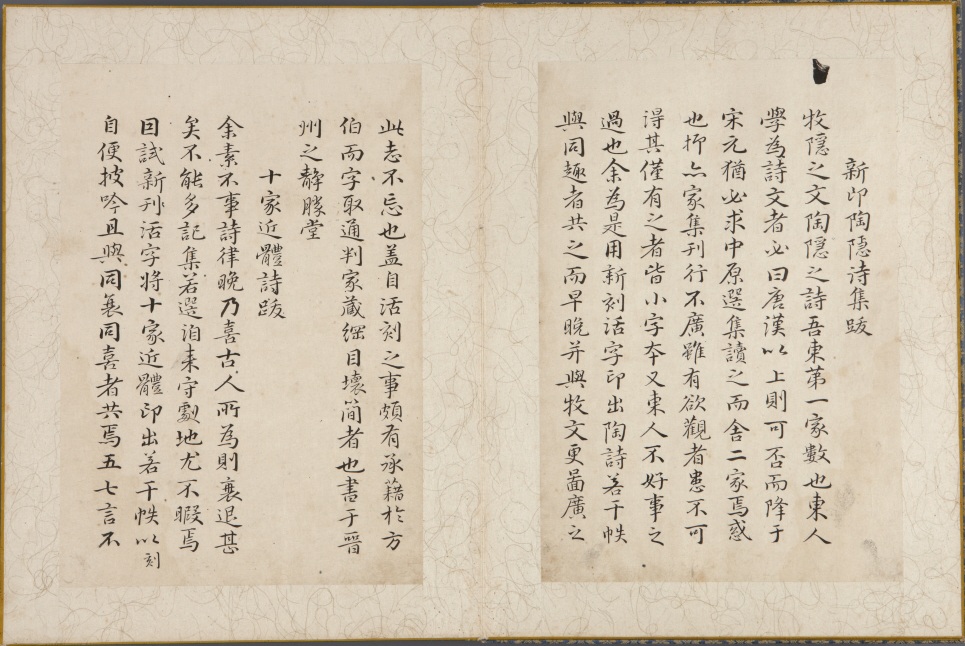 新印陶隱诗集跋
牧隱之文陶隱之詩吾東第一家數也東人
學為詩文者必曰唐漢以上則可否而降于
宋元猶必求中原選集讀之而舍二家焉惑
也抑二家集刊行不廣雖有欲觀者患不可
得其僅有之者皆小字夲又東人不好事之
過也余為是用新刻活字印出陶詩若干帙
與同趣者共之而早晚并與牧文更啚廣之
此志不忘也盖自活刻之事頗有承藉於方
伯而字取通判家藏綱目壞简者也書于晉
州之静勝堂
十家近體詩跋
余素不事詩律晚乃喜古人所為則衰退甚
矣不能多記集若選洎来守劇地尤不暇焉
因試新刊活字将十家近體印出若干帙以刻
自便披吟且與同衰同喜者共焉五七言不